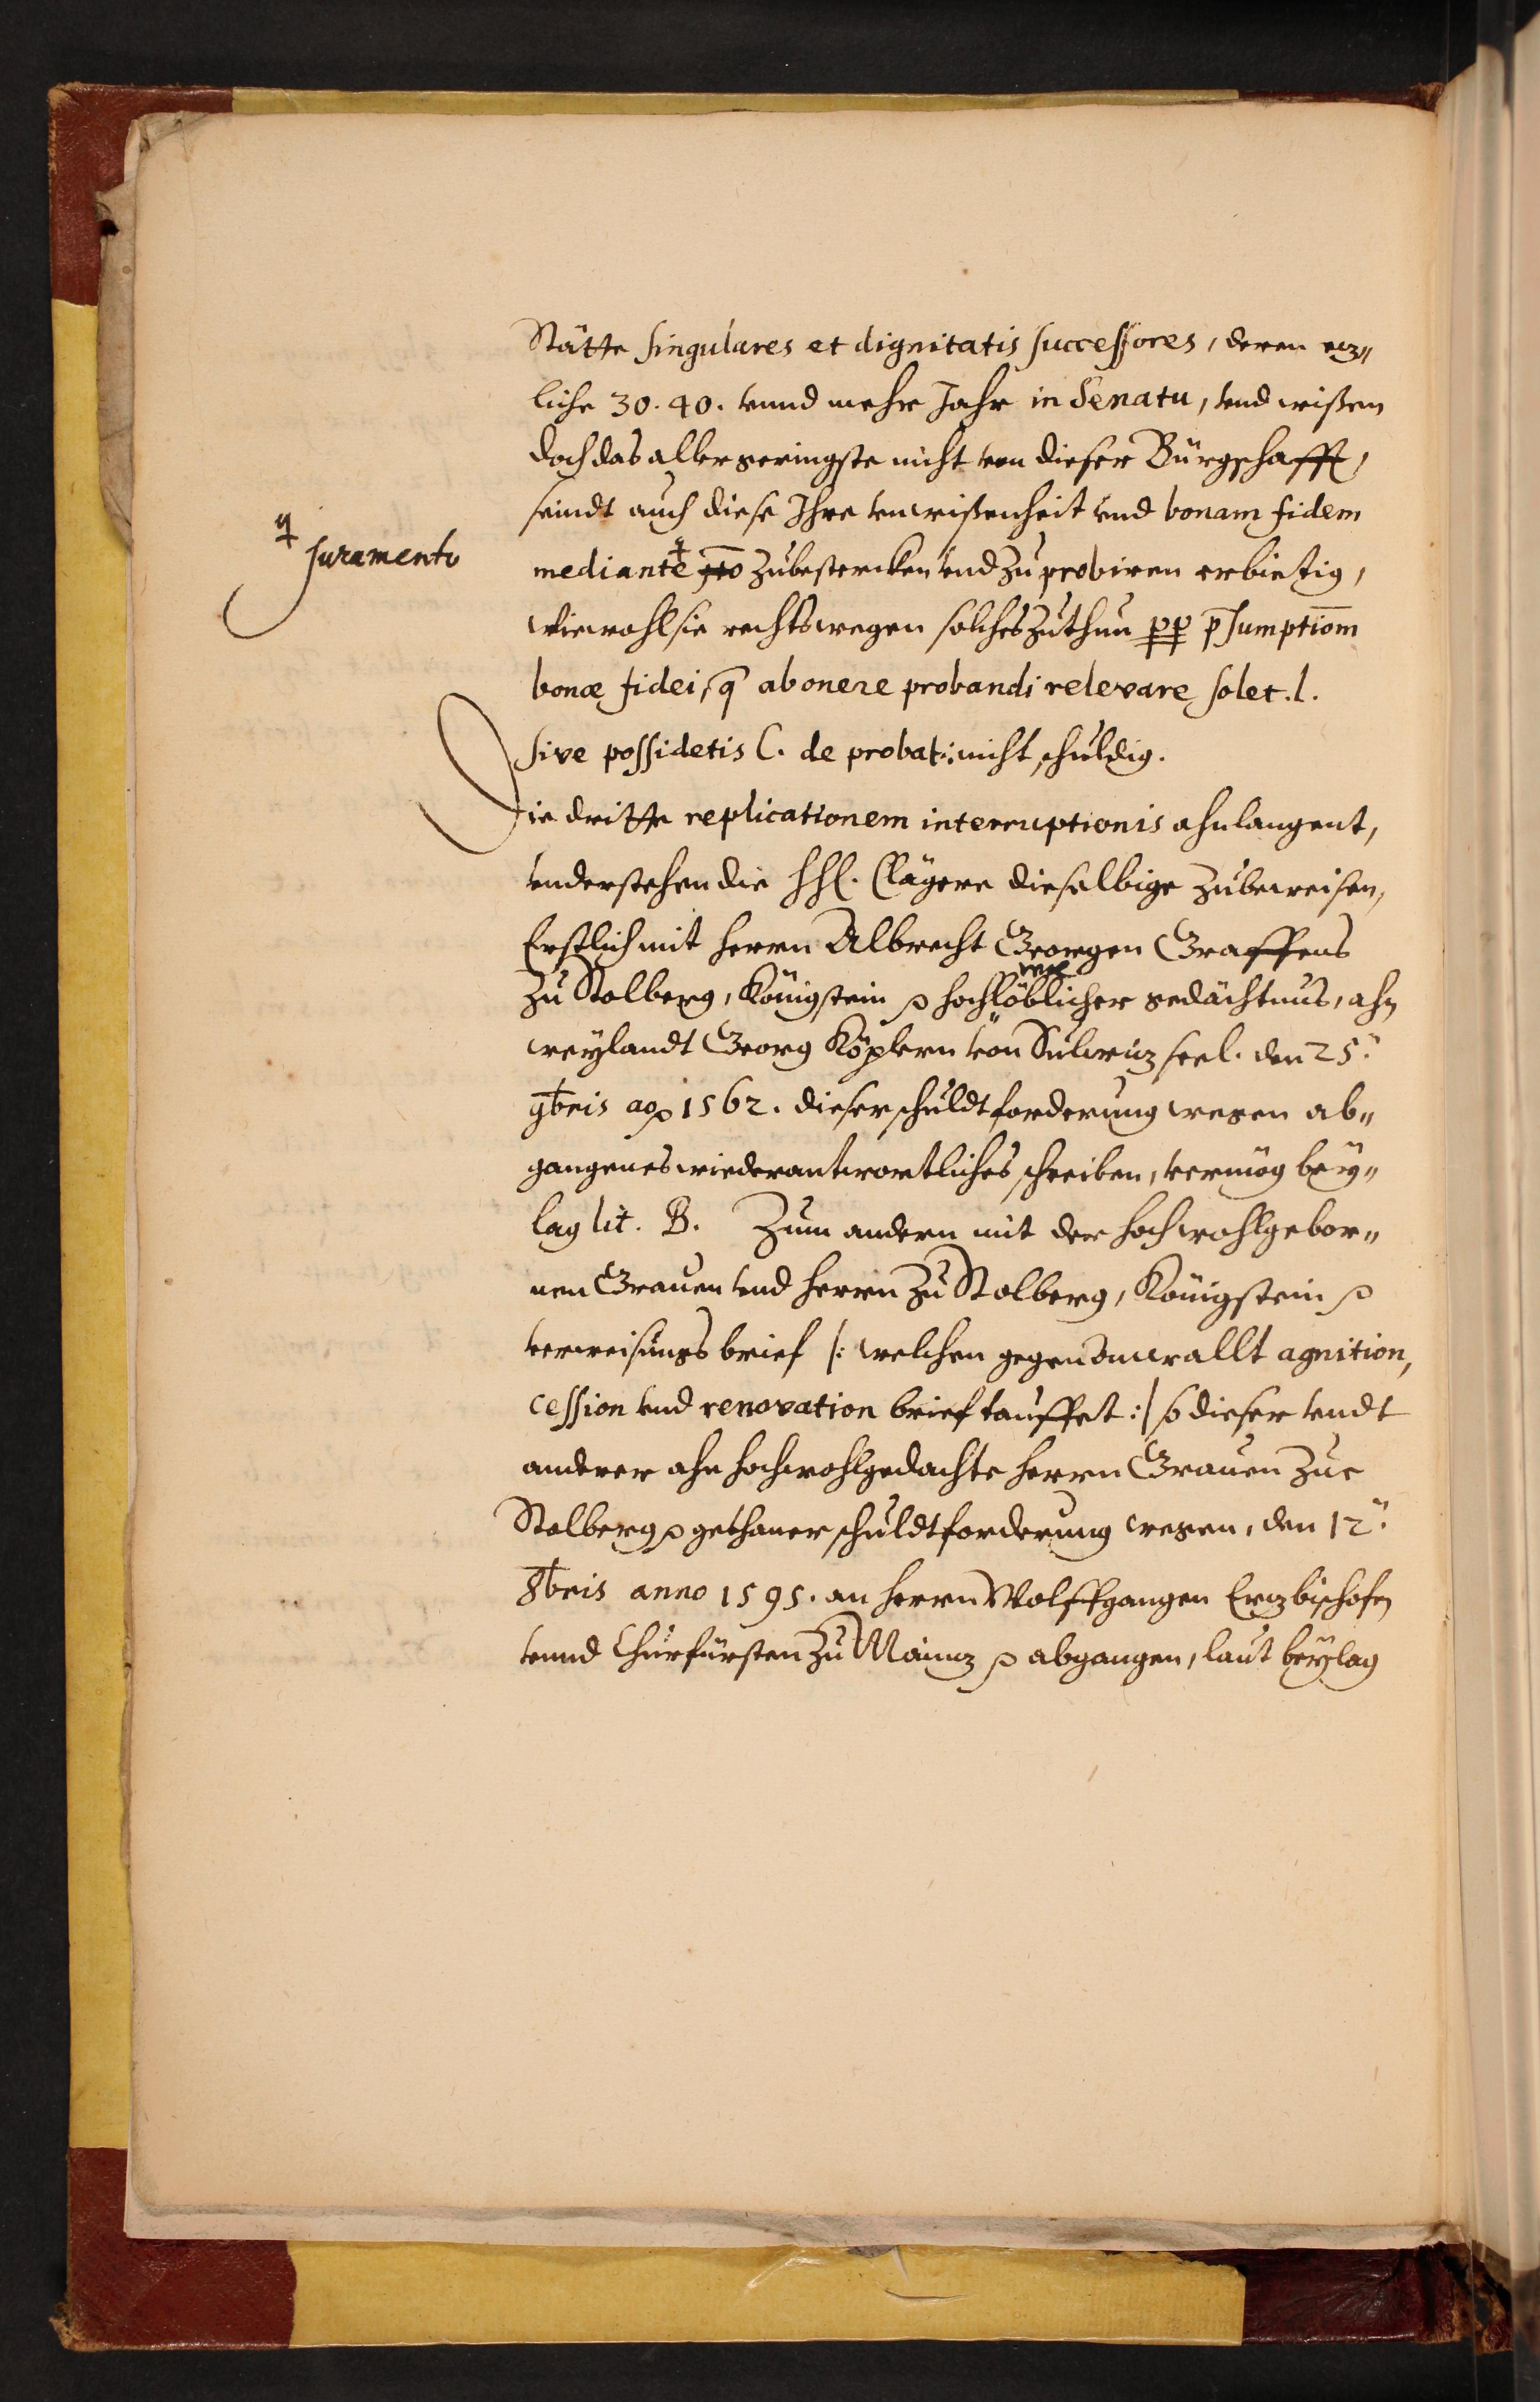 Stätte singulares et dignitatis successores, deren etz„
liche 30. 40. vnnd mehr Jahr in Senatu, vnd wißen
doch das allergeringste nicht von dieser Bürgschafft,
seindt auch diese Ihre vnwißenheit vnd bonam fidem
Juramento
mediante zubestercken vnd zu probiren erbietig,
wiewohl sie rechtswegen solches zuthun pp p̄sumptiōm
bonæ fidei, q̄ ab onere probandi relevare solet. l.
sive possidetis C. de probat: nicht schuldig.
Die dritte replicationem interruptionis ahnlangent,
vnderstehen die HH. Clägere dieselbige zubeweisen,
Erstlich mit herrn Albrecht Georgen Graffens
zu Stolberg, Königstein p hochlöblicher gedächtnus, ahn
weylandt Georg Köplern von Sulwitz seel. den 25.
9bris ao p 1562. dieser schuldtforderung wegen ab„
gangenes wiederantwortliches schreiben, vermög bey„
lag lit. B. Zum andern mit der hochwohlgebor„
nen Grauen vnd herrn zu Stolberg, Königstein p
verweisungs brief /: welchen gegenanwallt agnition,
cession vnd renovation brief tauffet :/ so dieser vndt
anderer ahn hochwohlgedachte herrn Grauen zue
Stolberg p gethaner schuldtforderung wegen, den 12.
8bris anno 1595. an herrn Wolffgangen Ertzbischofen
vnnd Churfürsten zu Maintz p abgangen, laut beylag